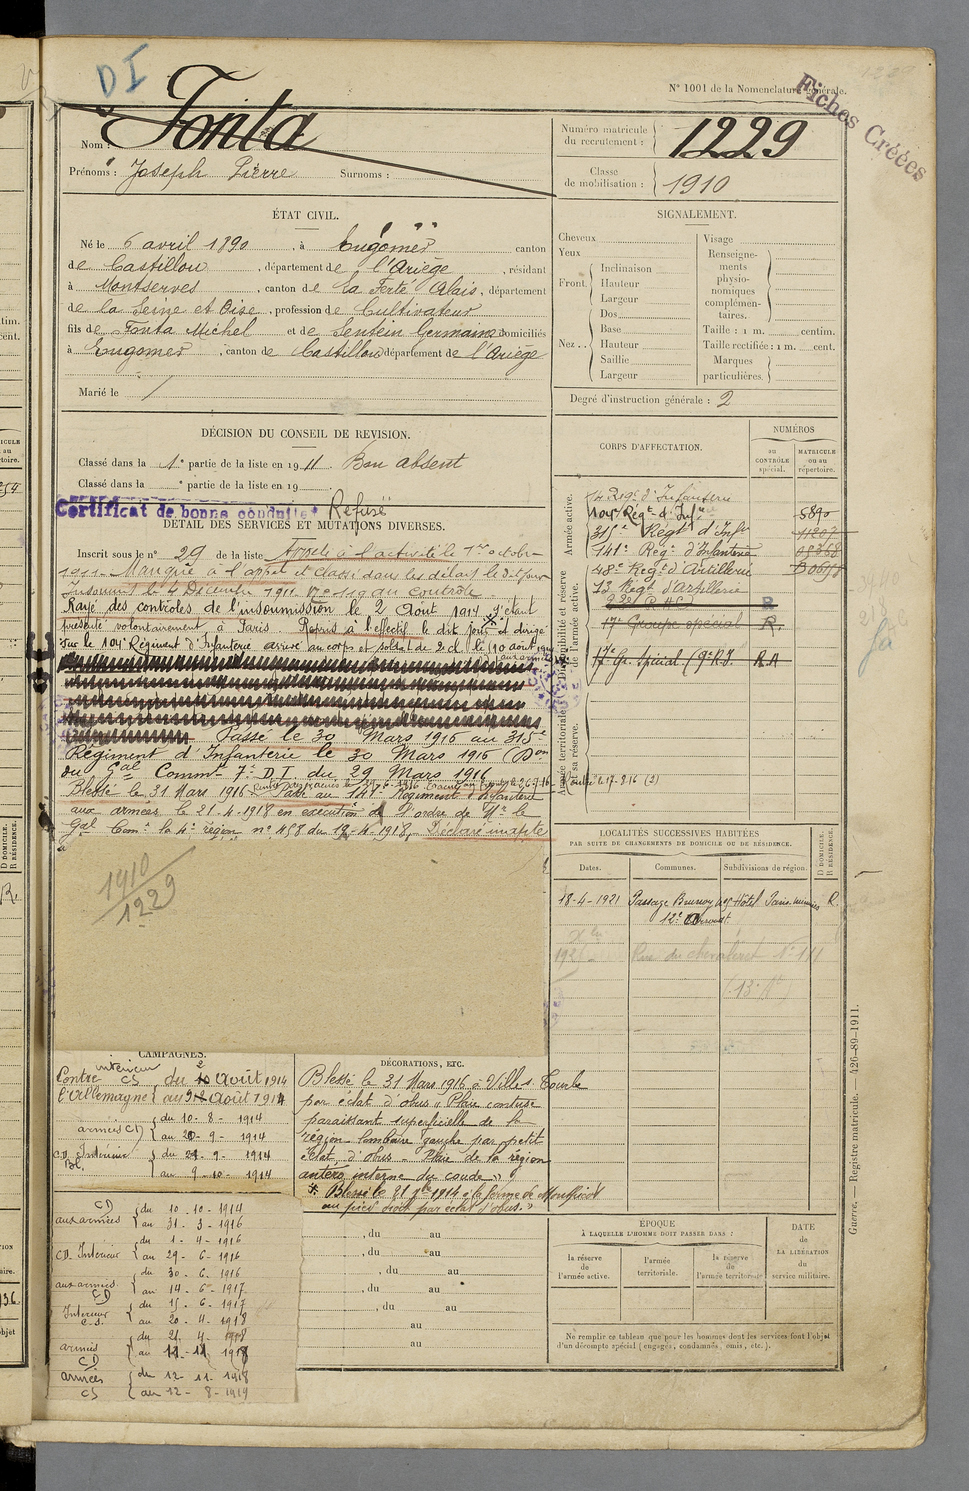 DI
N° 1001 de la Nomenclature générale.
Fiches Créées
Nom : Fonta
Prénoms : Joseph Pierre Surnoms :
Numéro matricule du recrutement : 1229
Classe de mobilisation : 1910
ÉTAT CIVIL.
Né le 6 avril 1890, à Eugomer canton
de Castillon, département de l'Ariège, résidant
à Montserves, canton de La Ferté Alais, département
de la Seine et Oise, profession de Cultivateur
fils de Fonta Michel et de Sentein Germaine domiciliés
à Eugomer, canton de Castillon département de l'Ariège
Marié le /
SIGNALEMENT.
Cheveux
Yeux
Front
Inclinaison
Hauteur
Largeur
Dos
Nez
Base
Hauteur
Saillie
Largeur
Visage
Renseignements physionomiques complémentaires.
Taille : 1 m. centim.
Taille rectifiée : 1 m. cent.
Marques particulières.
Degré d'instruction générale : 2
DÉCISION DU CONSEIL DE REVISION.
Classé dans la 1e partie de la liste en 1911. Bon absent
Classé dans la ° partie de la liste en 19
Certificat de bonne conduite Refusé
DÉTAIL DES SERVICES ET MUTATIONS DIVERSES.
Inscrit sous le n° 29 de la liste Appelé à l'activité le 1er octobre
1911. Manqué à l'appel et classé dans les délais le dit jour
Insoumis le 4 Décembre 1911. N° 119 du contrôle
Rayé des contrôles de l'insoumission le 2 Août 1914 s'étant
présenté volontairement à Paris. Repris à l'effectif le dit jour et dirigé
sur le 104e Régiment d'Infanterie arrivé au corps et soldat de 2e cl. le 10 août 1914
Passé le 30 Mars 1916 au 315e
Régiment d'Infanterie le 30 Mars 1916 (Don
du Gal Commt 7e D.I. du 29 Mars 1916
Blessé le 31 Mars 1916 Passé au 141e Régiment d'Infanterie
aux armées le 21-4-1918 en exécution de l'ordre de Mr le
Gal Comt la 4e région n° 458 du 12-4-1918. Déclaré inapte
1910
1229
CORPS D'AFFECTATION.
NUMÉROS
au CONTRÔLE spécial.
MATRICULE ou au répertoire.
Armée active.
Disponibilité et réserve de l'armée active.
Armée territoriale et sa réserve.
4. Regt d'Infanterie
104e Régt d'Infie 5890
315e Régt d'Infie 11207
141e Régt d'Infanterie
48e Regt d'Artillerie
13 Regt d'artillerie
17e Groupe spécial R.
17e Gr. Spécial R.A
LOCALITÉS SUCCESSIVES HABITÉES
PAR SUITE DE CHANGEMENTS DE DOMICILE OU DE RÉSIDENCE.
Dates. Communes. Subdivisions de région. D DOMICILE. R RÉSIDENCE.
18-4-1921 Passage Brunoy Hôtel Paris R.
12e Arrondt
Rue du chevaleret N° 111
(13e Ar)
CAMPAGNES.
Contre l'Allemagne
intérieur CS du 2 Août 1914
au 9 Août 1914
armées CD du 10-8-1914
au 20-9-1914
CD Intérieur Bl. du 21-9-1914
au 9-10-1914
CD aux armées du 10-10-1914
au 31-3-1916
CD. Intérieur du 1-4-1916
au 29-6-1916
aux armées CD du 30-6-1916
au 14-6-1917
Intérieur C.S. du 15-6-1917
au 20-4-1918
armées CD du 21-4-1918
au 11-11-1918
armées CS du 12-11-1918
au 12-8-1919
DÉCORATIONS, ETC.
Blessé le 31 Mars 1916 à Ville s. Tourbe
par éclat d'obus "Plaie contuse
paraissant superficielle de la
région lombaire gauche par petit
éclat d'obus - Plaie de la région
antéro interne du coude"
Blessé le 21 7bre 1914 à la ferme de
au pied droit par éclat d'obus."
, du au
, du au
, du au
, du au
au
au
ÉPOQUE
À LAQUELLE L'HOMME DOIT PASSER DANS :
la réserve de l'armée active.
l'armée territoriale.
la réserve de l'armée territoriale.
DATE de LA LIBÉRATION du service militaire.
Ne remplir ce tableau que pour les hommes dont les services font l'objet
d'un décompte spécial (engagés, condamnés, omis, etc.).
Guerre. — Registre matricule. — A26-89-1911.